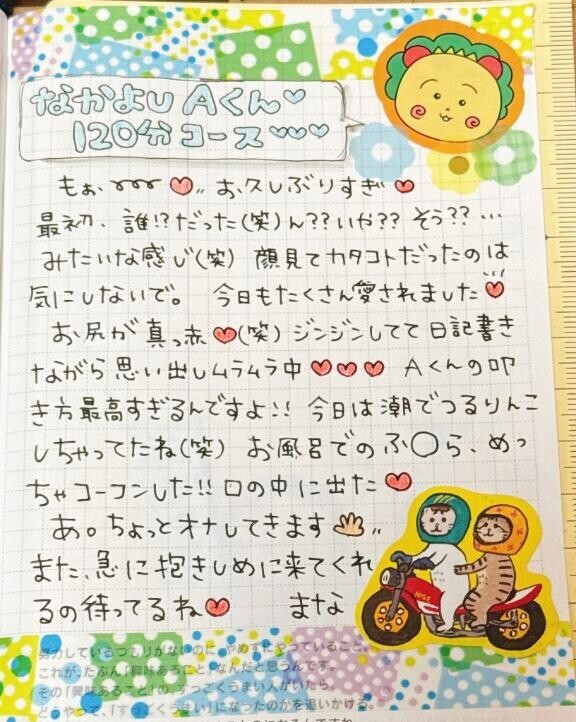 なかよし Aくん♡
120分 コース♡♡♡
もぉ、♡〃 お久しぶりすぎ♡
最初、誰!?だった(笑)ん??いや??そう??…
みたいな感じ(笑) 顔見てカタコトだったのは
気にしないで。 今日もたくさん愛されました♡
お尻が真っ赤♡(笑)ジンジンしてて日記書き
ながら思い出しムラムラ中♡♡♡ Aくんの叩
き方最高すぎるんですよ!! 今日は潮でつるりんこ
しちゃってたね(笑) お風呂でのふ〇ら、めっ
ちゃコーフンした!!口の中に出た♡
あ。ちょっとオナしてきます〃
また、急に抱きしめに来てくれ
るの待ってるね♡ まな
努力しているつもりがないのに、やめずにやっていること。
これが、たぶん「興味あること」なんだと思うんです。
その「興味あること」の、すっごくうまい人がいたら、
どうやって、「すっごくうまい」になったのかを追いかける。